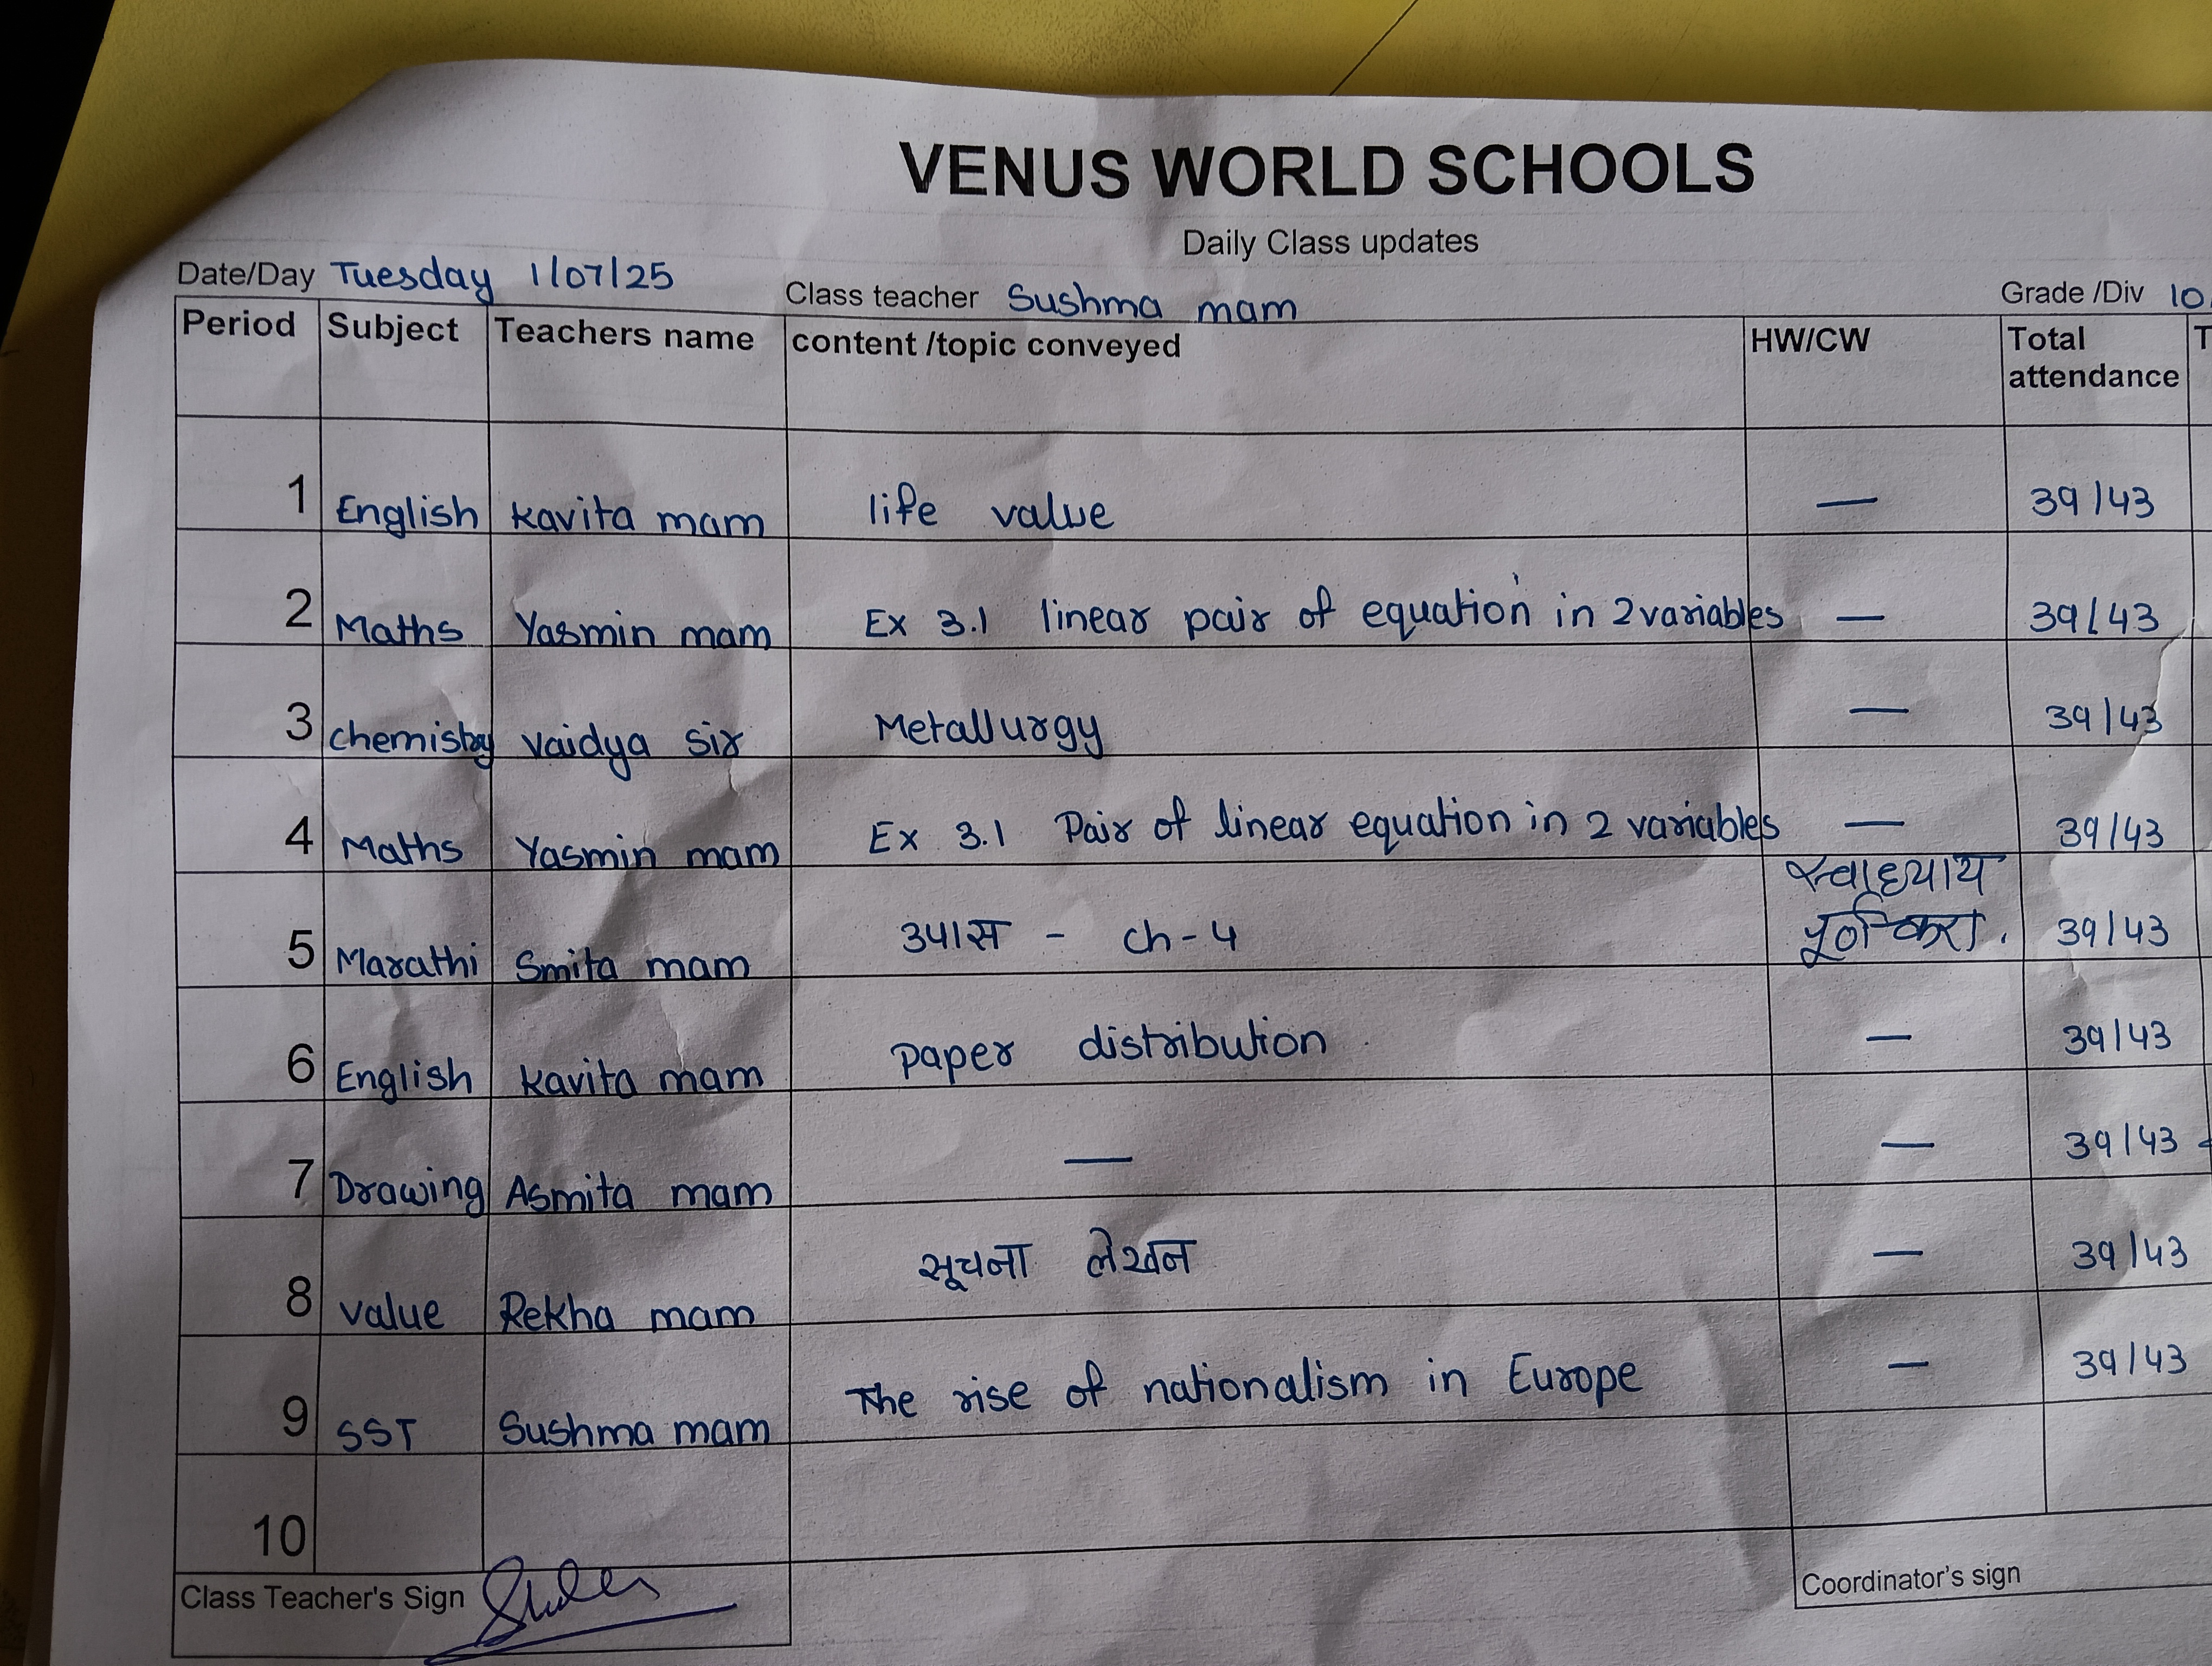 VENUS WORLD SCHOOLS
Daily Class updates
Date/Day Tuesday 1/07/25 Class teacher Sushma mam Grade /Div 10
Period Subject Teachers name content /topic conveyed HW/CW Total attendance T
1 English Kavita mam life value — 39/43
2 Maths Yasmin mam Ex 3.1 linear pair of equation in 2 variables — 39/43
3 chemistry vaidya sir Metallurgy — 39/43
4 Maths Yasmin mam Ex 3.1 Pair of linear equation in 2 variables — 39/43
स्वाध्याय
5 Marathi Smita mam उपास - ch-4 पूर्ण करा. 39/43
6 English Kavita mam paper distribution — 39/43
7 Drawing Asmita mam — — 39/43
8 value Rekha mam सूचना लेखन — 39/43
9 SST Sushma mam The rise of nationalism in Europe — 39/43
10
Class Teacher's Sign
Coordinator's sign